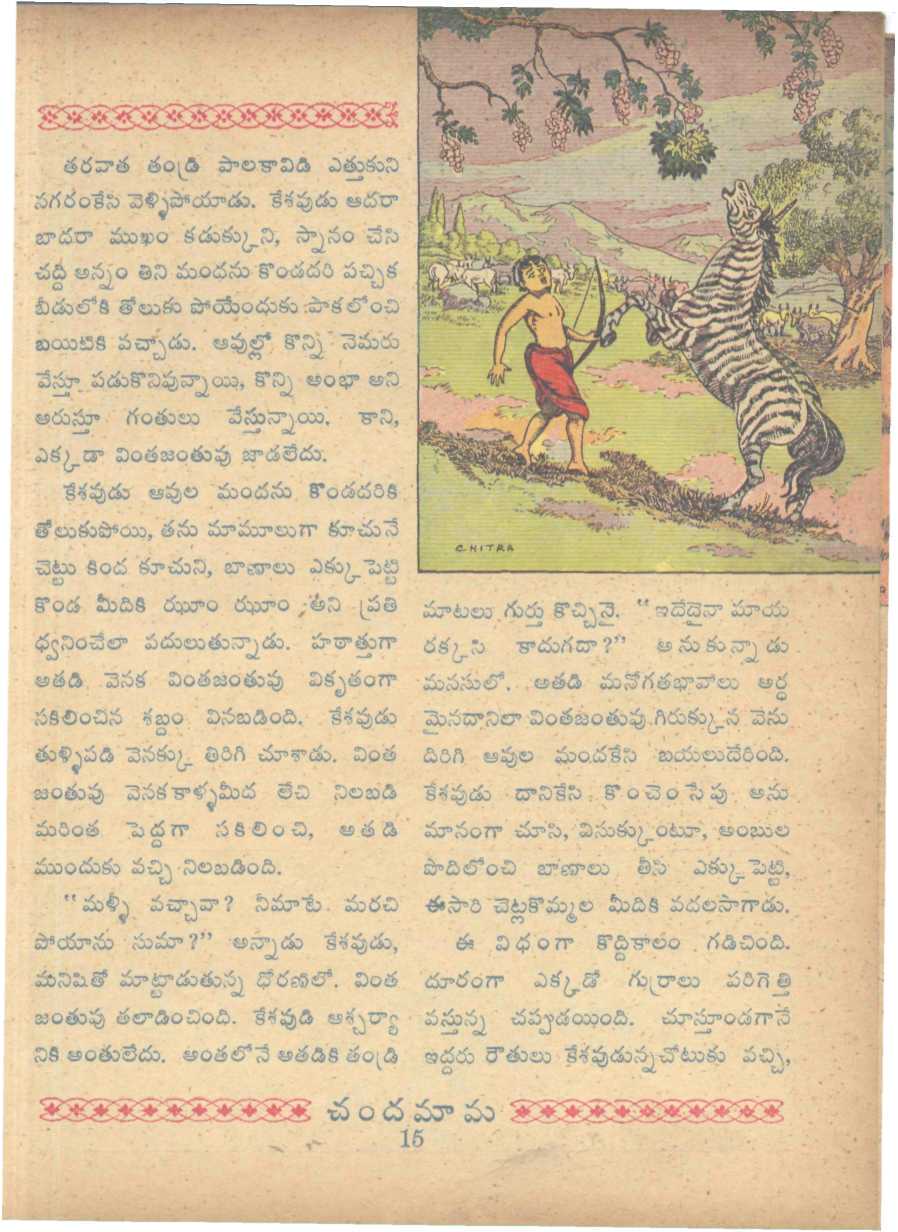 తరవాత తండ్రి పాలకావిడి ఎత్తుకుని
నగరంకేసి వెళ్ళిపోయాడు. కేశవుడు ఆదరా
బాదరా ముఖం కడుక్కుని, స్నానం చేసి
చద్ది అన్నం తిని మందను కొండదరి పచ్చిక
బీడులోకి తోలుకు పోయేందుకు పాకలోంచి
బయిటికి వచ్చాడు. ఆవుల్లో కొన్ని నెమరు
వేస్తూ పడుకొనివున్నాయి, కొన్ని అంభా అని
అరుస్తూ గంతులు వేస్తున్నాయి. కాని,
ఎక్కడా వింతజంతువు జాడలేదు.
కేశవుడు ఆవుల మందను కొండదరికి
తోలుకుపోయి, తను మామూలుగా కూచునే
చెట్టు కింద కూచుని, బాణాలు ఎక్కుపెట్టి
కొండ మీదికి ఝూం ఝూం అని ప్రతి
ధ్వనించేలా వదులుతున్నాడు. హఠాత్తుగా
అతడి వెనక వింతజంతువు వికృతంగా
సకిలించిన శబ్దం వినబడింది. కేశవుడు
తుళ్ళిపడి వెనక్కు తిరిగి చూశాడు. వింత
జంతువు వెనకకాళ్ళమీద లేచి నిలబడి
మరింత పెద్దగా సకిలించి, అతడి
ముందుకు వచ్చి నిలబడింది.
“మళ్ళీ వచ్చావా? నీమాటే మరచి
పోయాను సుమా?” అన్నాడు కేశవుడు,
మనిషితో మాట్టాడుతున్న ధోరణిలో. వింత
జంతువు తలాడించింది. కేశవుడి ఆశ్చర్యా
నికి అంతులేదు. అంతలోనే అతడికి తండ్రి
CHITRA
మాటలు గుర్తు కొచ్చినై. “ఇదేదైనా మాయ
రక్కసి కాదుగదా?” అనుకున్నాడు
మనసులో. అతడి మనోగతభావాలు అర్ధ
మైనదానిలా వింతజంతువు గిరుక్కున వెను
దిరిగి ఆవుల మందకేసి బయలుదేరింది.
కేశవుడు దానికేసి కొంచెంసేపు అను
మానంగా చూసి, విసుక్కుంటూ, అంబుల
పొదిలోంచి బాణాలు తీసి ఎక్కుపెట్టి,
ఈసారి చెట్లకొమ్మల మీదికి వదలసాగాడు.
ఈ విధంగా కొద్దికాలం గడిచింది.
దూరంగా ఎక్కడో గుర్రాలు పరిగెత్తి
వస్తున్న చప్పుడయింది. చూస్తూండగానే
ఇద్దరు రౌతులు కేశవుడున్నచోటుకు వచ్చి,
చందమామ
15